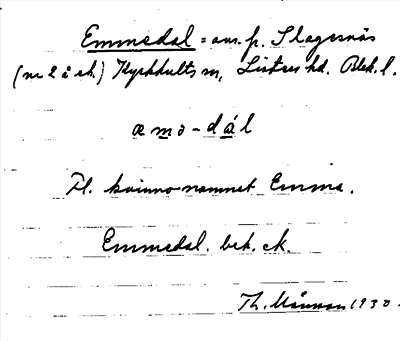 Emmedal = avs. fr. Slagesnäs
(nr 2 å ek.) Kyrkhults sn, Listers hd. Blek. l.
æmə - dál
Til. kvinnonamnet Emma.
Emmedal. bek. ek.
Th. Månsson 1930.